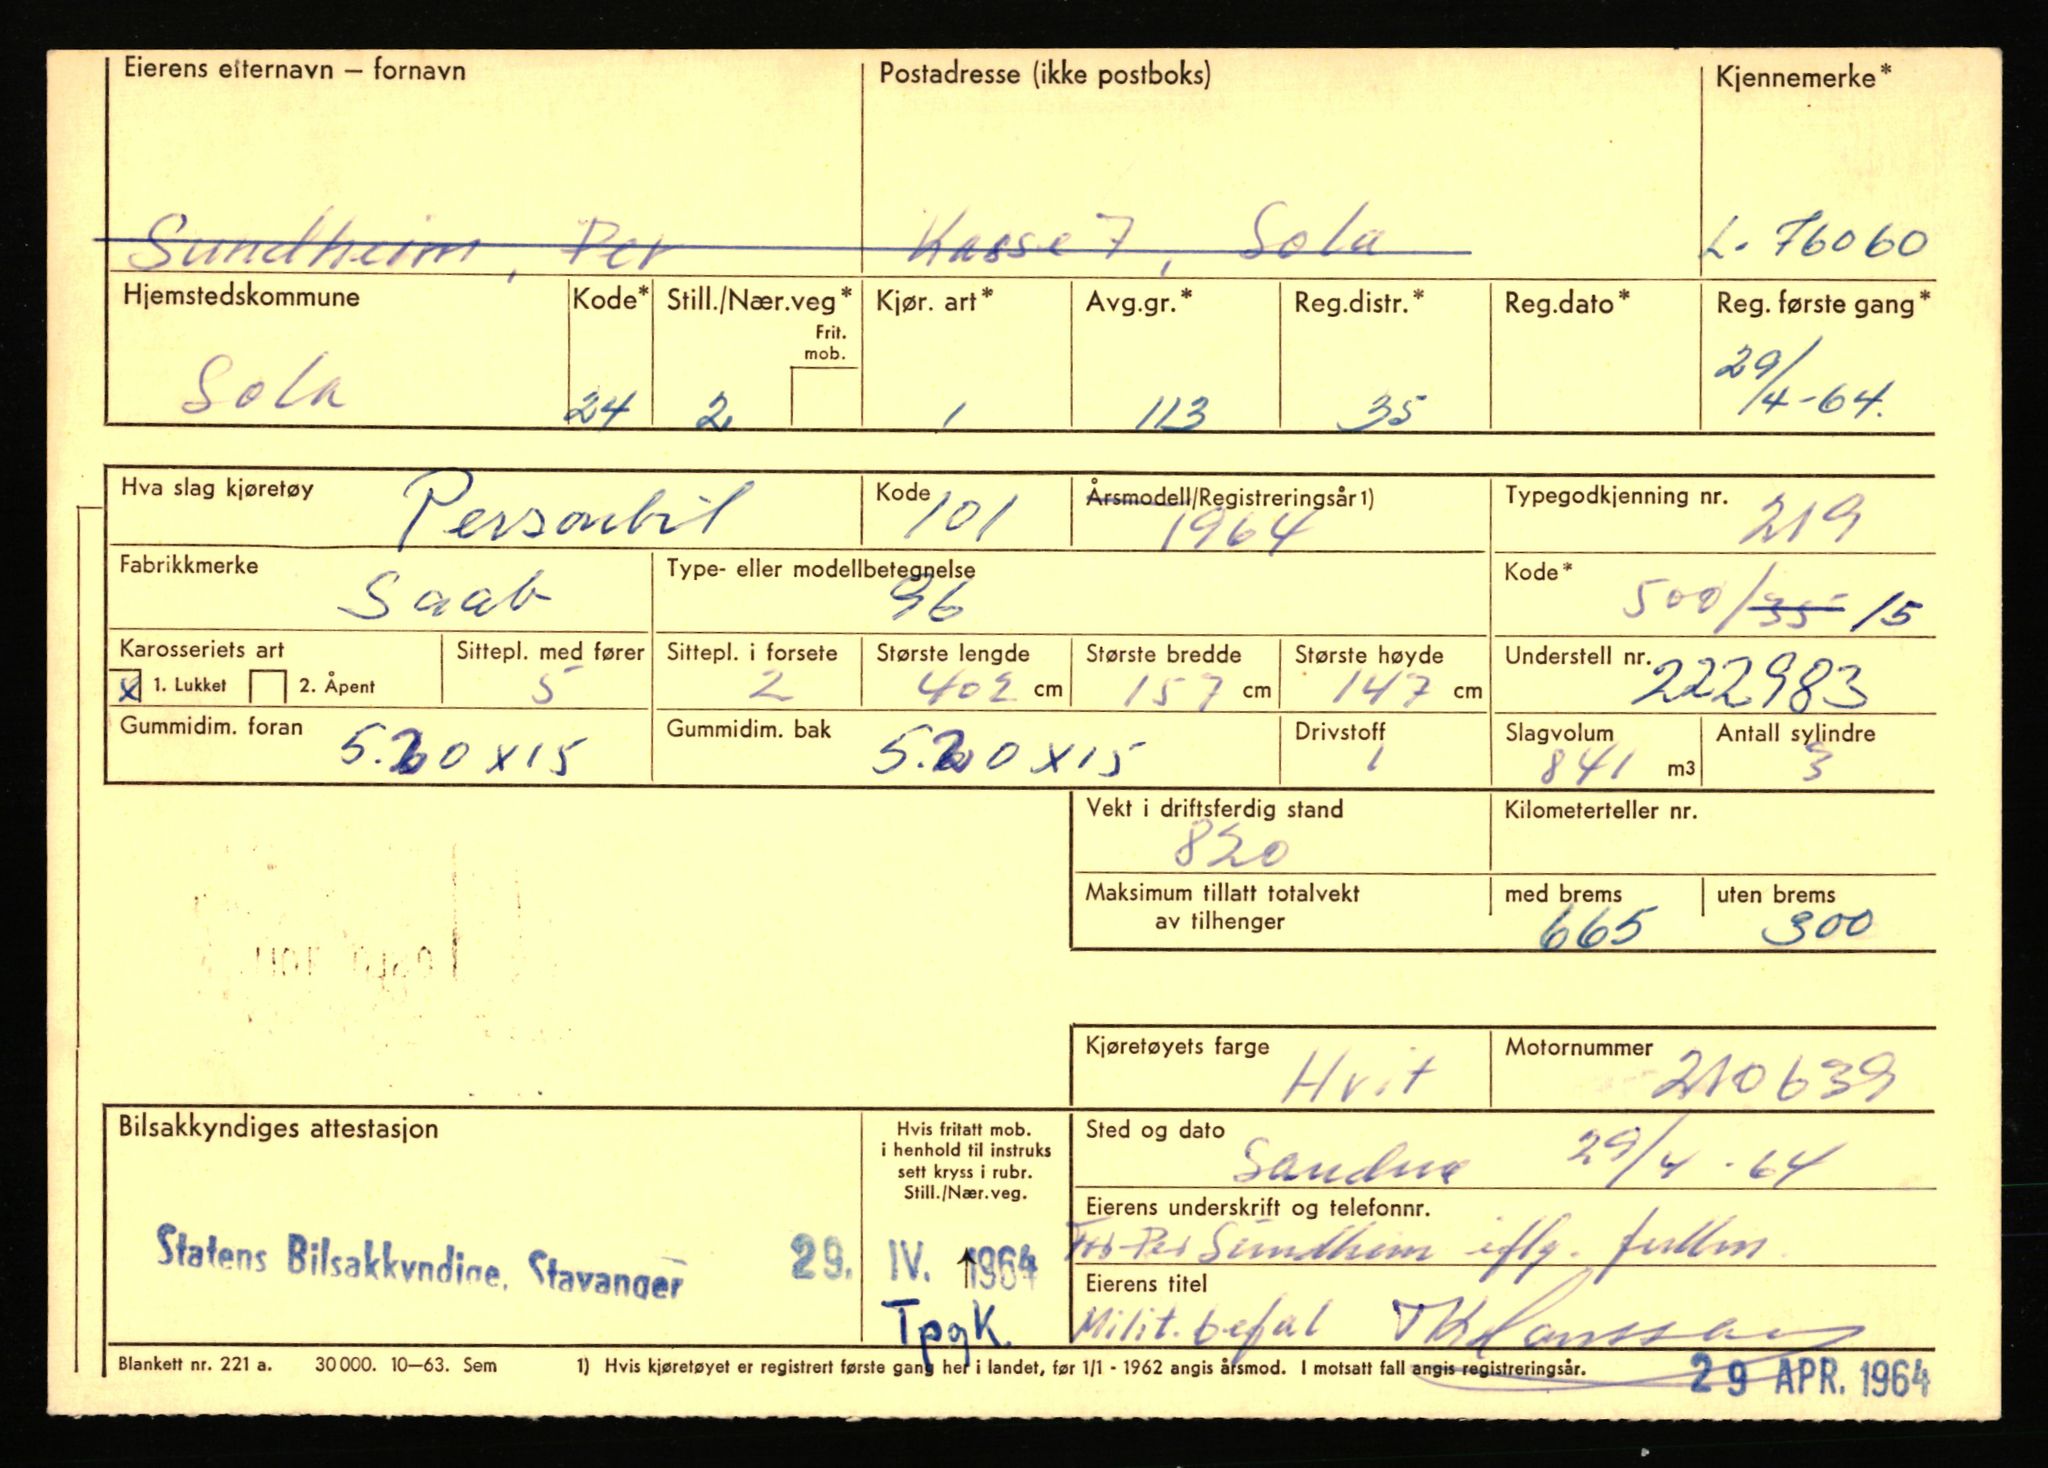 Eierens etternavn – fornavn
Postadresse (ikke postboks)
Kjennemerke*
Sundheim, Per
Kasse 7, Sola
L- 76060
Hjemstedskommune
Kode*
Still./Nær.veg*
Kjør. art*
Avg.gr.*
Reg.distr.*
Reg.dato*
Reg. første gang*
Frit.
mob.
Sola
24
2
1
113
35
29/4-64.
Hva slag kjøretøy
Personbil
Kode
101
Årsmodell/Registreringsår 1)
1964
Typegodkjenning nr.
219
Fabrikkmerke
Saab
Type- eller modellbetegnelse
96
Kode*
500/35 15
Karosseriets art
x 1. Lukket
2. Åpent
Sittepl. med fører
5
Sittepl. i forsete
2
Største lengde
402 cm
Største bredde
157 cm
Største høyde
147 cm
Understell nr.
222983
Gummidim. foran
5.20 x 15
Gummidim. bak
5.20 x 15
Drivstoff
1
Slagvolum
841 m3
Antall sylindre
3
Vekt i driftsferdig stand
820
Kilometerteller nr.
Maksimum tillatt totalvekt
av tilhenger
med brems
665
uten brems
300
Kjøretøyets farge
Hvit
Motornummer
210639
Bilsakkyndiges attestasjon
Hvis fritatt mob.
i henhold til instruks
sett kryss i rubr.
Still./Nær.veg.
Sted og dato
29/4-64
Eierens underskrift og telefonnr.
For Per Sundheim iflg. fullm.
Statens Bilsakkyndige, Stavanger
29. IV. 1964
TpgK.
Eierens titel
Milit. befal
29 APR. 1964
Blankett nr. 221 a. 30 000. 10–63. Sem
1) Hvis kjøretøyet er registrert første gang her i landet, før 1/1 - 1962 angis årsmod. I motsatt fall angis registreringsår.